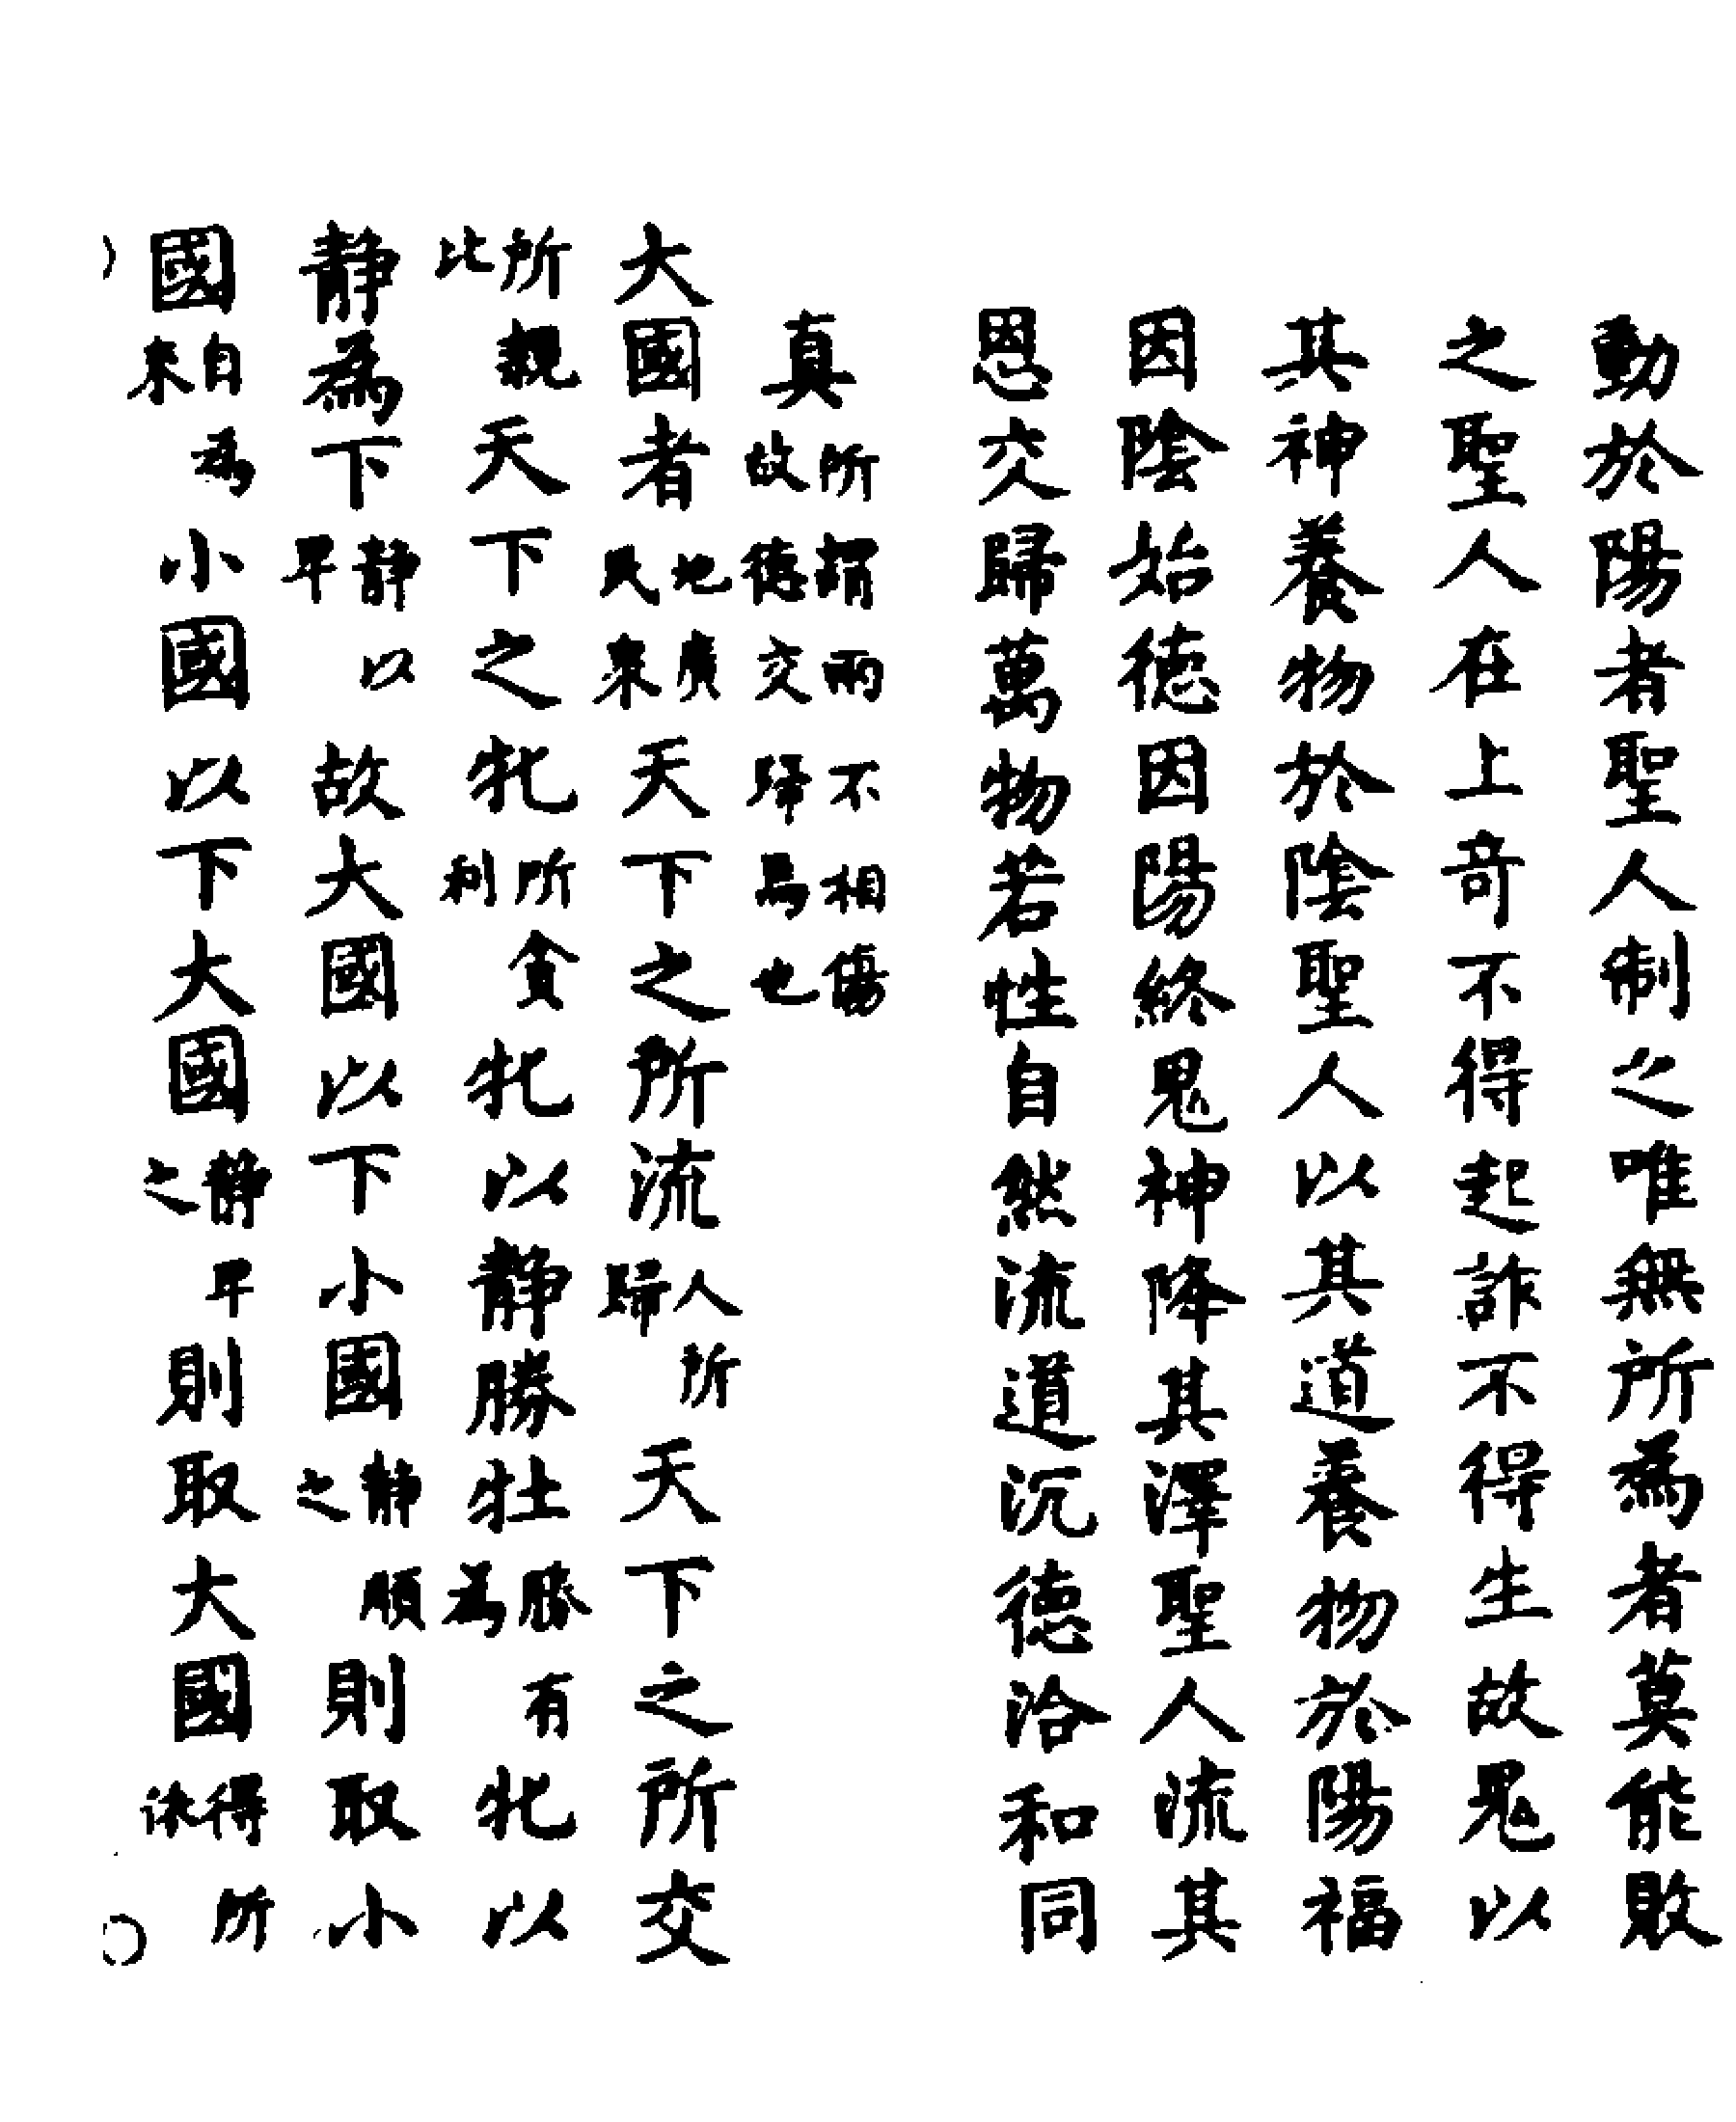 動於陽者聖人制之唯無所為者莫能敗
之聖人在上奇不得起詐不得生故鬼以
其神養物於陰聖人以其道養物於陽福
因陰始徳因陽終鬼神降其澤聖人流其
恩交歸萬物若性自然流道沉徳洽和同
真所謂兩不相傷故徳交歸焉也
大國者地廣民衆天下之所流人所歸天下之所交
所親比天下之牝所貪利牝以静勝牡勝有為牝以
静為下静以卑故大國以下小國静順之則取小
國自為來小國以下大國静卑之則取大國得所休